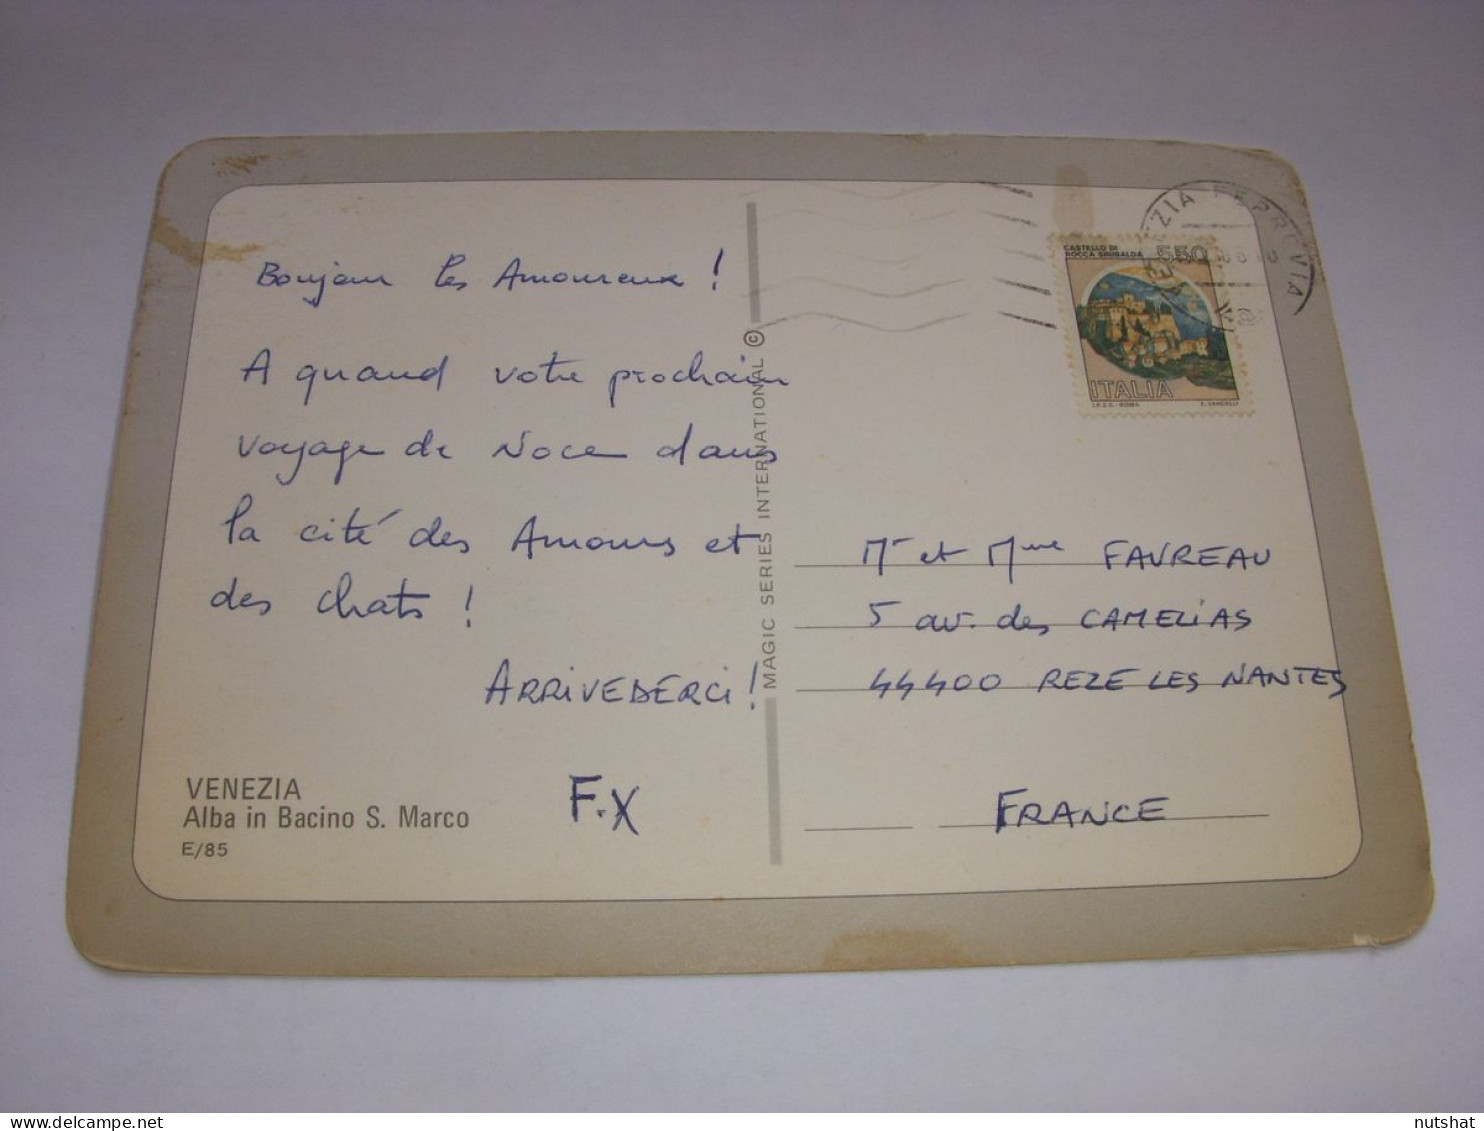 Bonjour les Amoureux !
A quand votre prochain
voyage de Noce dans
la cité des Amours et
des chats !
ARRIVEDERCI !
F.X
VENEZIA
Alba in Bacino S. Marco
E/85
MAGIC SERIES INTERNATIONAL ©
CASTELLO DI
ROCCA SINIBALDA
550
ITALIA
I.P.Z.S. - ROMA
E. VANGELLI
VENEZIA FERROVIA
Mr et Mme FAVREAU
5 av. des CAMELIAS
44400 REZE LES NANTES
FRANCE
nutshat